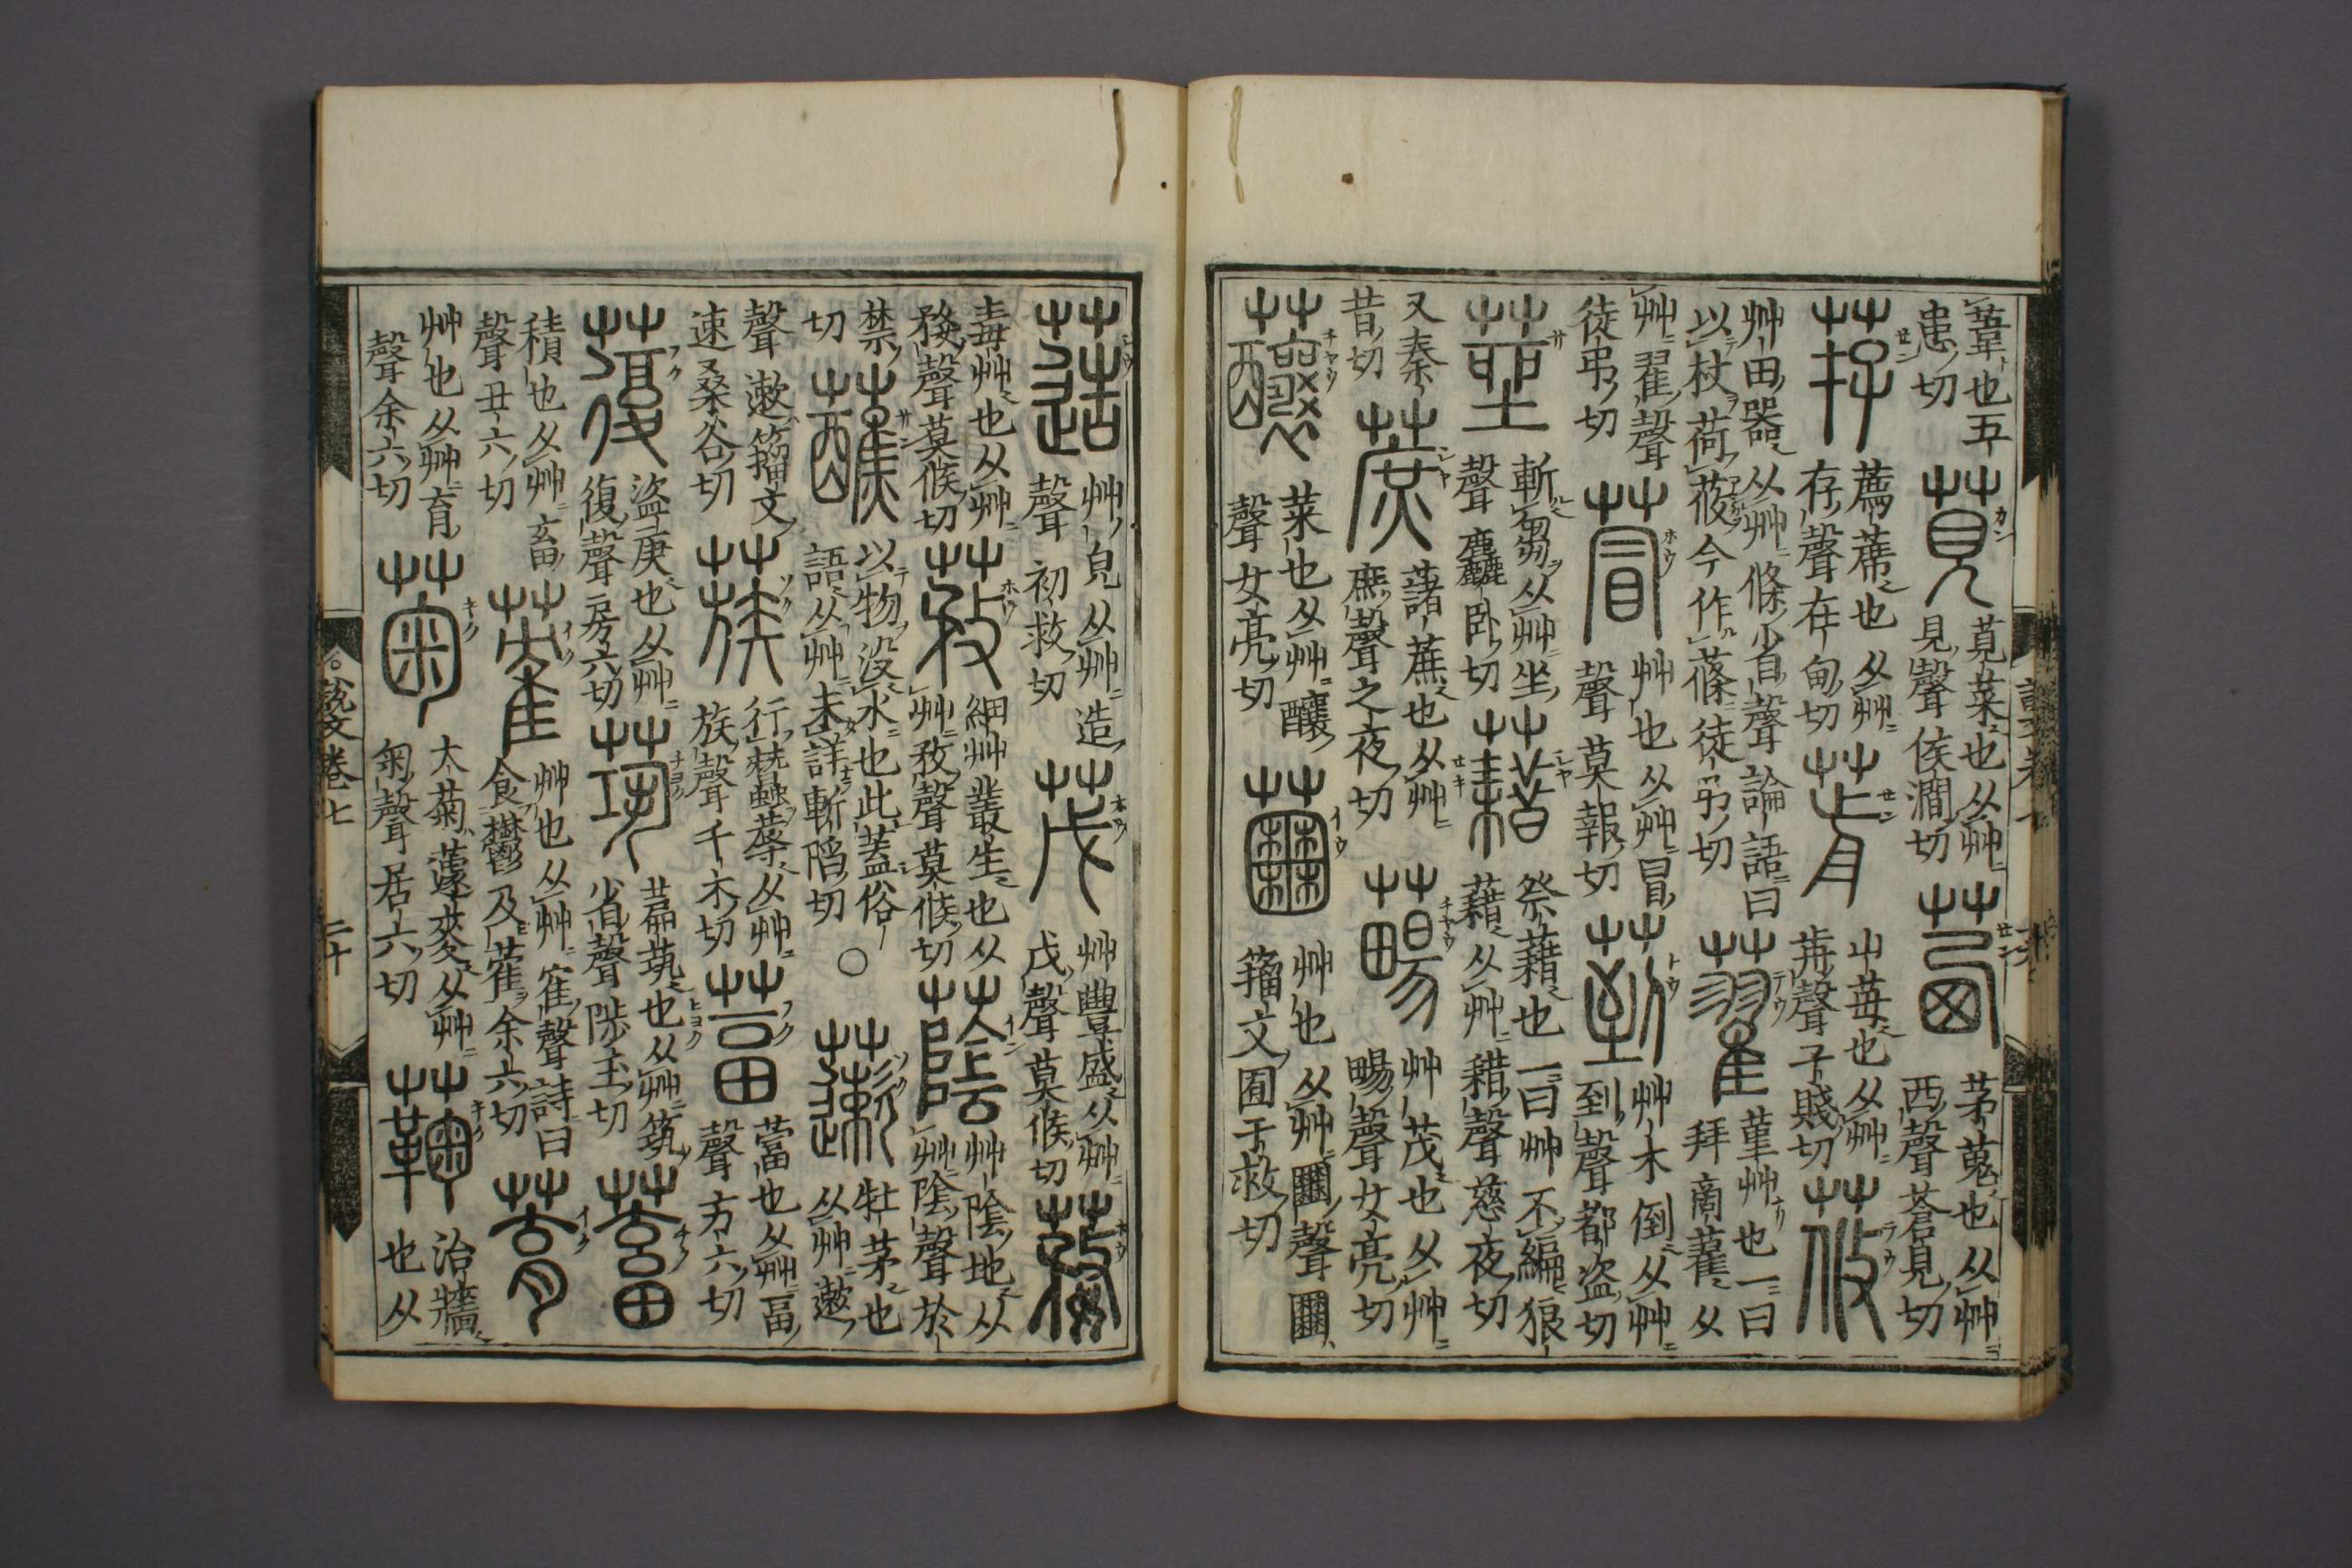 葦也五患切 莧 莧菜也从艸見聲侯澗切 茜 茅蒐也从艸西聲蒼見切
荐 薦蓆也从艸存聲在甸切 葥 山苺也从艸歬聲子賤切 莜
艸田器从艸條省聲論語曰以杖荷莜今作蓧徒弔切 藋 堇艸也一曰拜商藋从
艸翟聲徒弔切 萺 艸也从艸冒聲莫報切 菿 艸木倒从艸到聲都盜切
莝 斬芻从艸坐聲麤卧切 藉 祭藉也一曰艸不編狼藉从艸耤聲慈夜切
又秦昔切 蔗 藷蔗也从艸庶聲之夜切 艸茂也从艸畼聲女亮切
菜也从艸釀聲女亮切 艸也从艸聲籒文囿于救切
艸皃从艸造聲初救切 茂 艸豐盛从艸戊聲莫候切 蓩
毒艸也从艸務聲莫候切 細艸叢生也从艸敄聲莫候切 蔭 艸陰地从艸陰聲於
禁切 蘸 以物没水也此蓋俗語从艸未詳斬陷切 ○ 藗 牡茅也从艸遬
聲遬籒文速又桑谷切 蔟 行蠶蓐从艸族聲千木切 葍 䔰也从艸畐聲方六切
蕧 盜庚也从艸復聲房六切 茿 萹茿也从艸筑省聲陟玉切 蓄
積也从艸畜聲丑六切 蒮 艸也从艸隺聲詩曰食鬱及蒮余六切
艸也从艸育聲余六切 菊 大菊蘧麥从艸匊聲居六切 治牆也从
說文卷七 二十